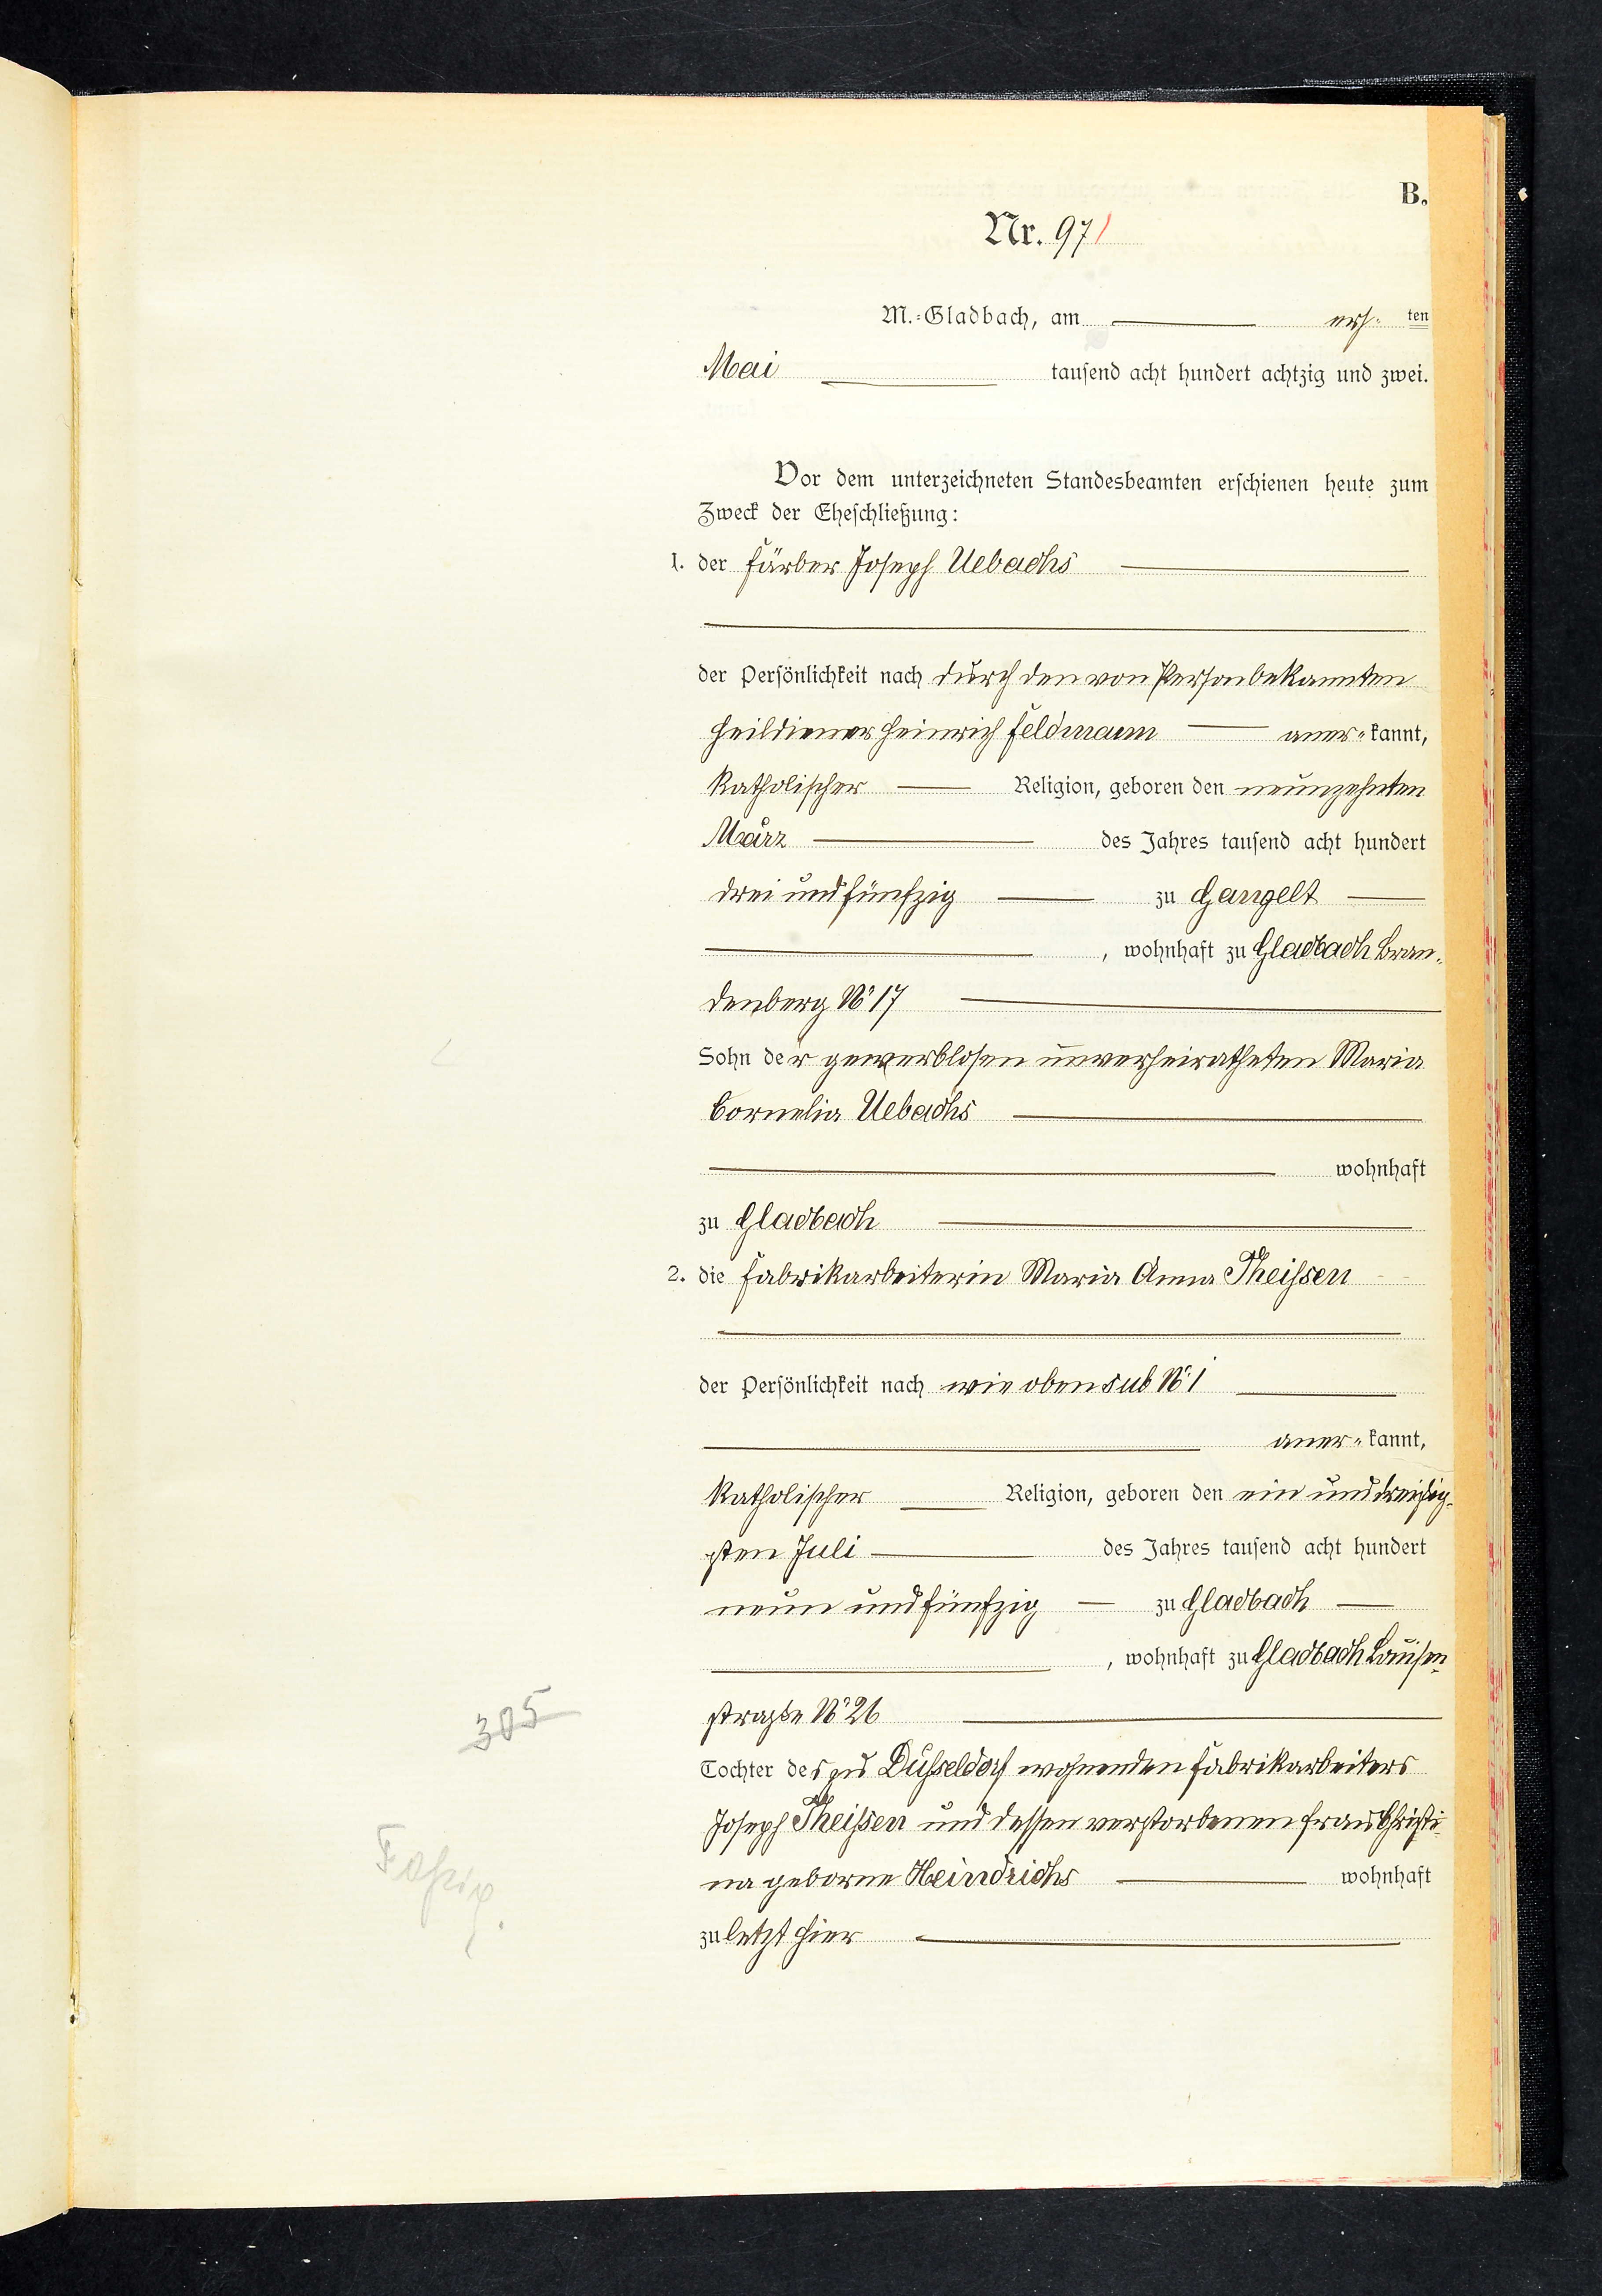 B.
Nr. 97
M.-Gladbach, am ers- ten
Mai tausend acht hundert achtzig und zwei.
Vor dem unterzeichneten Standesbeamten erschienen heute zum
Zweck der Eheschließung:
1. der Färber Joseph Uebachs
der Persönlichkeit nach durch den von Person bekannten
Heildiener Heinrich Feldmann aner-kannt,
katholischer Religion, geboren den neunzehnten
März des Jahres tausend acht hundert
drei und fünfzig zu Gangelt
, wohnhaft zu Gladbach Bran-
denberg No 17
Sohn der gewerblosen unverheiratheten Maria
Cornelia Uebachs
wohnhaft
zu Gladbach
2. die Fabrikarbeiterin Maria Anna Theissen
der Persönlichkeit nach wie oben sub No 1
aner-kannt,
katholischer Religion, geboren den ein und dreißig-
sten Juli des Jahres tausend acht hundert
neun und fünfzig zu Gladbach
, wohnhaft zu Gladbach Louisen
straße No 26
Tochter des zu Düsseldorf wohnenden Fabrikarbeiters
Joseph Theissen und dessen verstorbenen Frau Christi-
na geborne Heindrichs wohnhaft
zuletzt hier
305